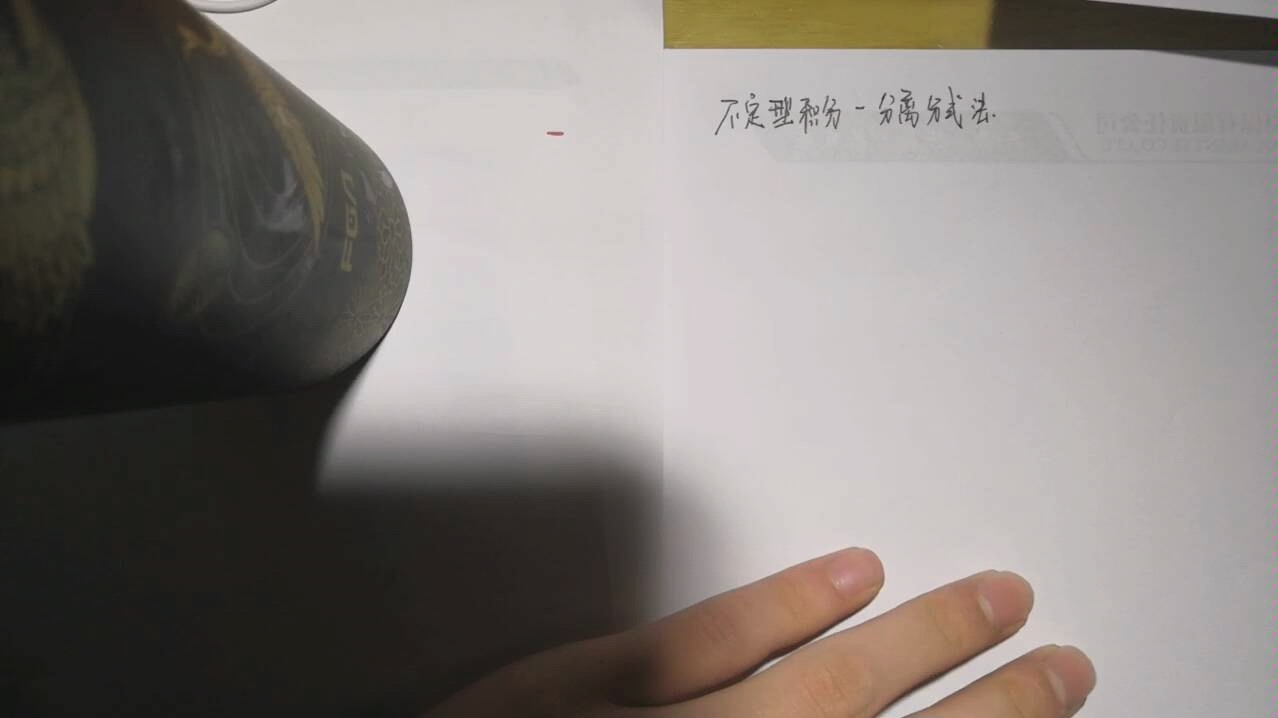 不定型积分-分离分式法.
FGA